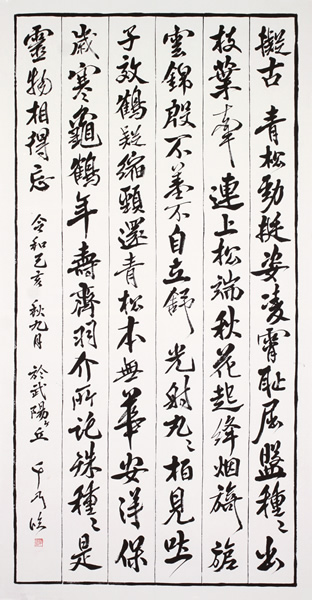 擬古 青松勁挺姿凌霄恥屈盤種〻出
枝葉牽連上松端秋花起絳烟旖旎
雲錦殷不羞不自立舒光射丸〻柏見吐
子效鶴疑縮頸還青松本無華安得保
歲寒龜鶴年壽齊羽介所託殊種〻是
靈物相得忘 令和己亥 秋九月 於武陽ヶ丘